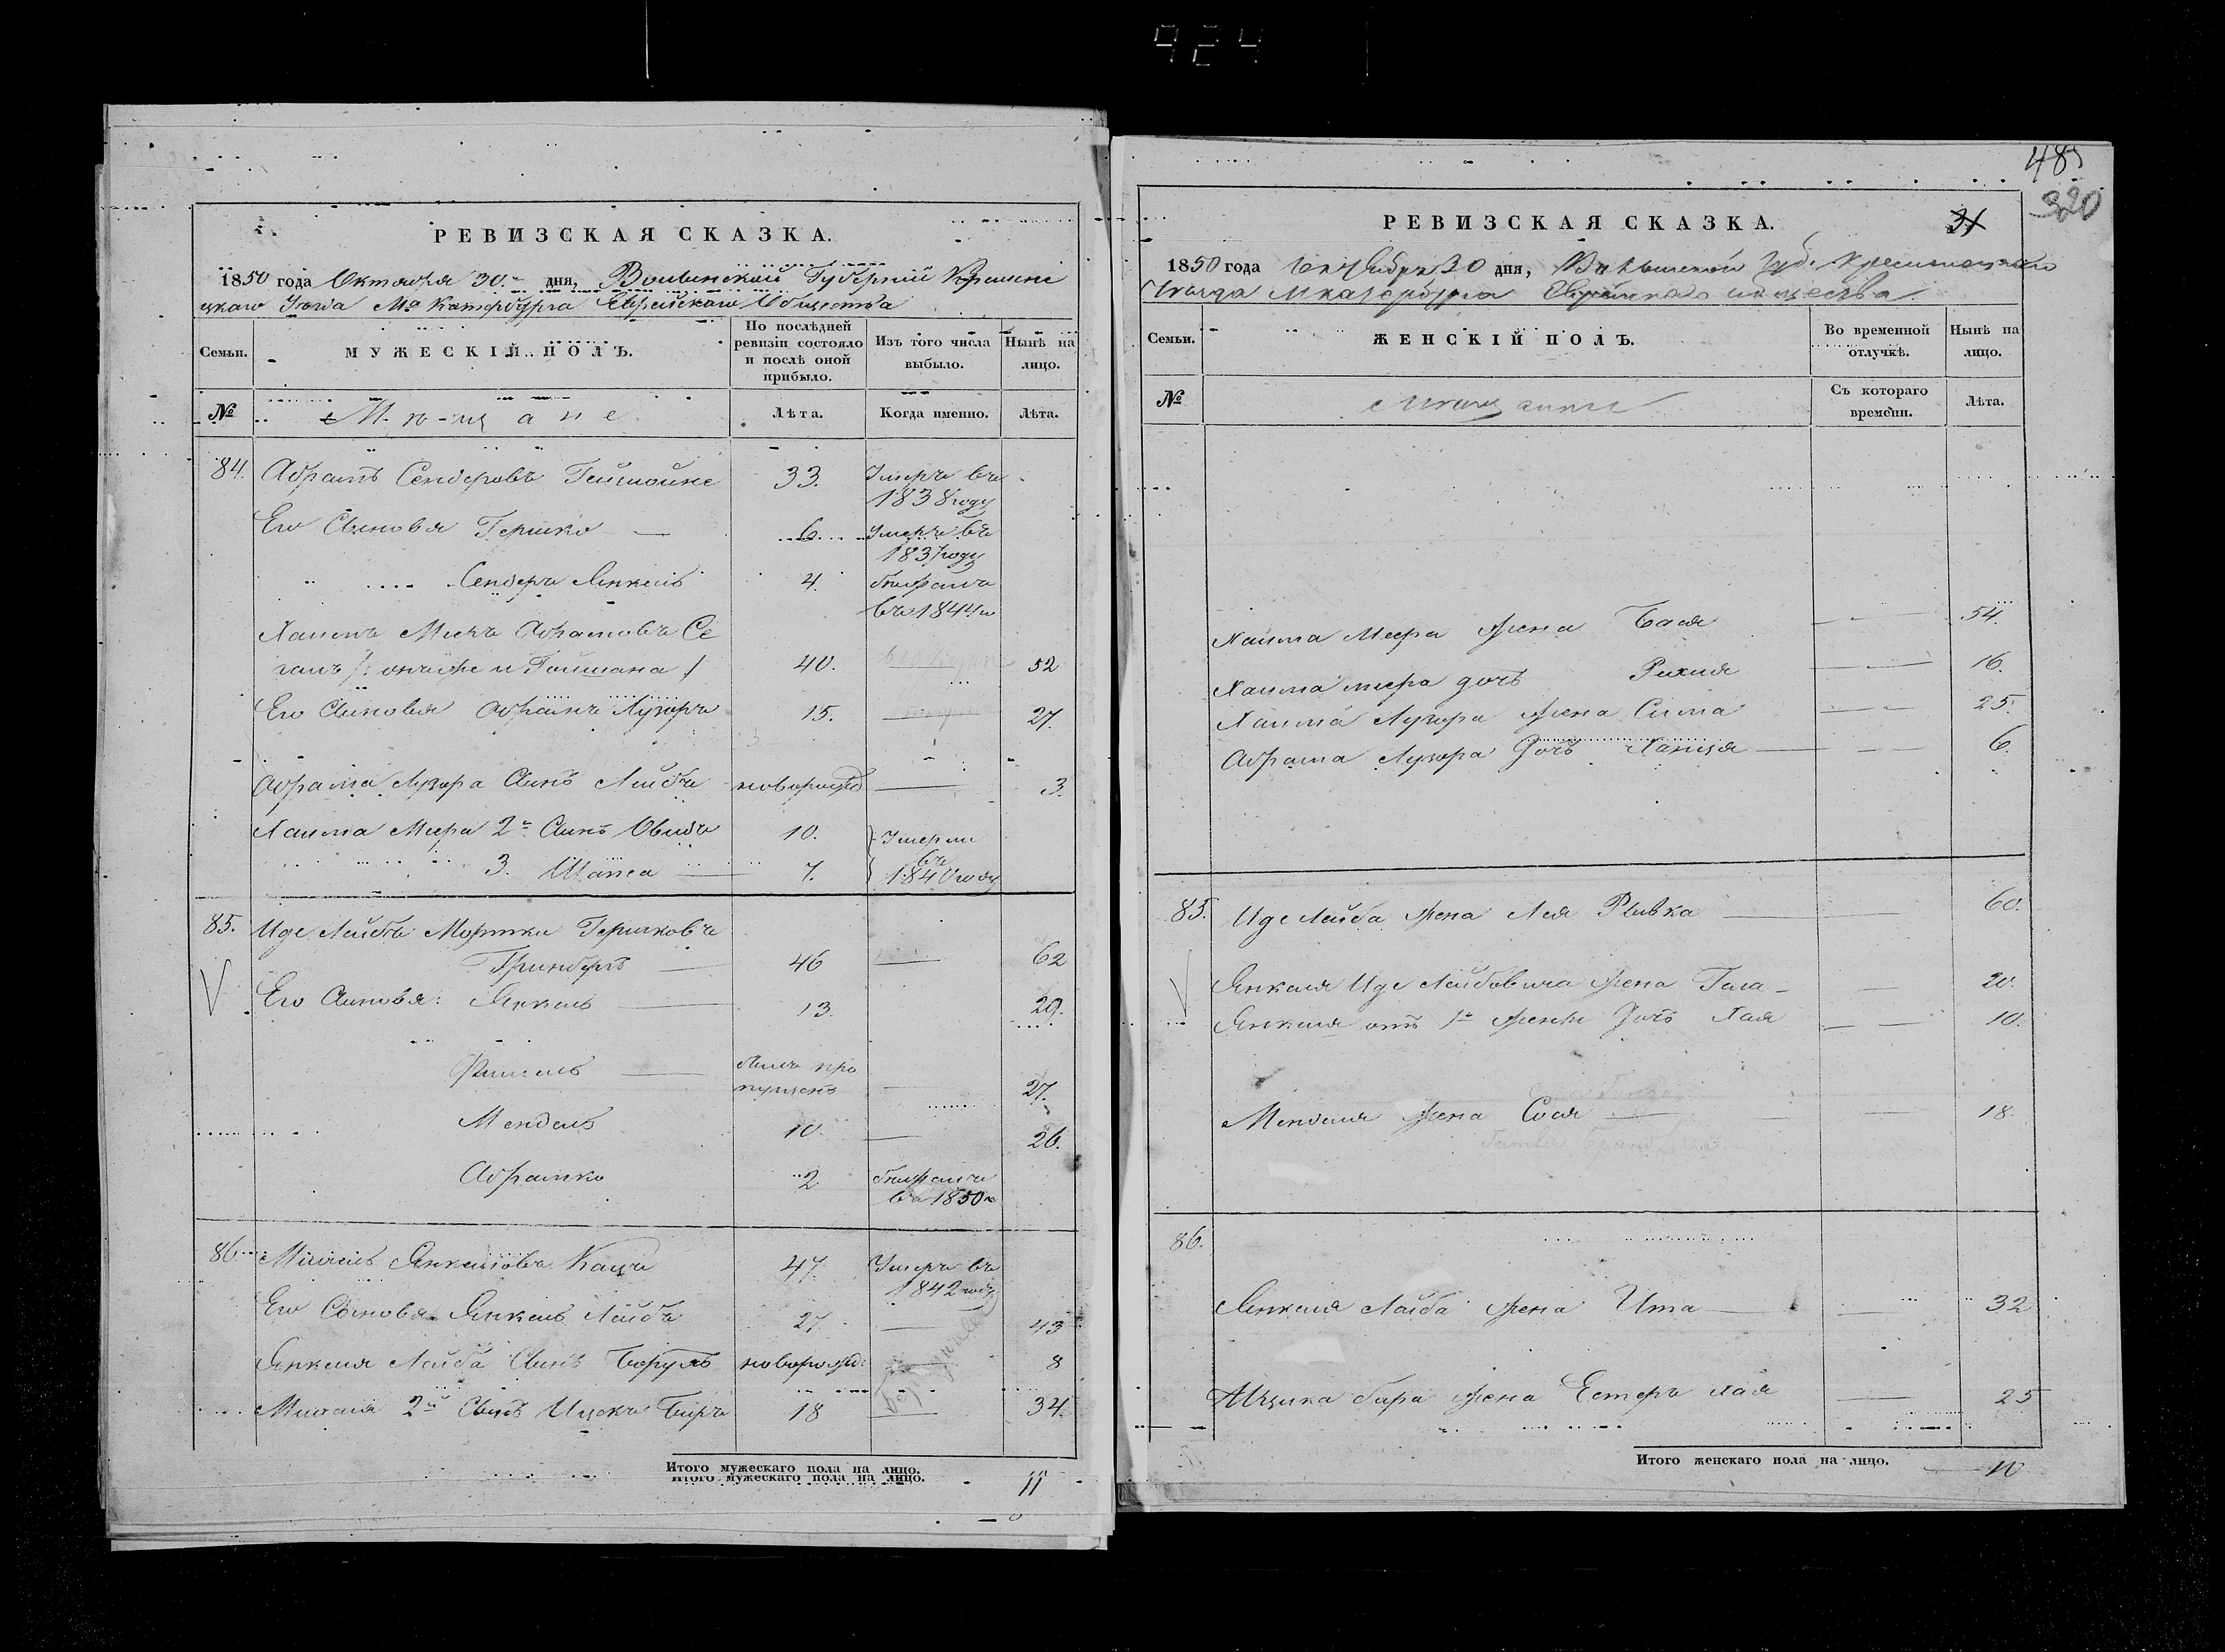 924
РЕВИЗСКАЯ СКАЗКА.
1850 года Октября 30. дня, Волынской Губерніи Кремене
цкаго Уѣзда Мѣ Катербурга Еврейскаго Общества
Семьи.
МУЖЕСКІЙ ПОЛЪ.
По послѣдней ревизіи состояло и послѣ оной прибыло.
Изъ того числа выбыло.
Нынѣ на лицо.
№
Мѣщане
Лѣта.
Когда именно.
Лѣта.
84. Абрамъ Сендеровъ 33. Умеръ въ
1838 году
Его Сыновья Гершко — 6. Умеръ въ
1837 году
Сендеръ Янкель 4.
въ 1844 г
Хаимъ Мееръ Абрамовъ Се
галъ /: онъ же и /40. 52
Его Сыновья Абрамъ Лузоръ 15. — 27.
Абрама Лузора Сынъ Лейба новорожд — 3.
Хаима Меера 2й Сынъ Овидъ 10. Умерли
въ
3. Шапса — 7. 1840 году
85. Иде Лейбъ Мортки Гершковъ
Гринбергъ — 46 — 62
Его Сыновья: Янкель — 13. 29.
Фишель — былъ про
пущенъ — 27.
Мендель 10. — 26.
Абрамко 2
въ 1850 г
86. Янкелевъ Кацъ 47. Умеръ въ
1842 году
Его Сыновья Янкель Лейбъ 27. — 43
Янкеля Лейба Сынъ Борухъ новорожд: — 8
2й Сынъ Ицекъ Беръ 18 — 34.
Итого мужескаго пола на лицо.
Итого мужескаго пола на лицо. 11
485
320
РЕВИЗСКАЯ СКАЗКА. 31
1850 года Октября 30 дня, Волынской Губ. Кременецкаго
Уѣзда М Катербурга Еврейскаго общества
Семьи.
ЖЕНСКІЙ ПОЛЪ.
Во временной отлучкѣ.
Нынѣ на лицо.
№
Мѣщанки
Съ котораго времени.
Лѣта.
Хаима Меера жена Бася — 54.
Хаима меера дочь Рихля — 16.
Хаима Лузора жена Сима — 25.
Абрама Лузора Дочь — 6.
85. Иде Лейба жена Лея Ривка — 60.
Янкеля Иде Лейбовича жена — 20.
Янкеля отъ 1й жены Дочь Хая — 10.
Менделя жена Сося — 18.
86.
Янкеля Лейба жена Ита — 32
Ицика Бера жена Естеръ Хая — 25
Итого женскаго пола на лицо. — 10